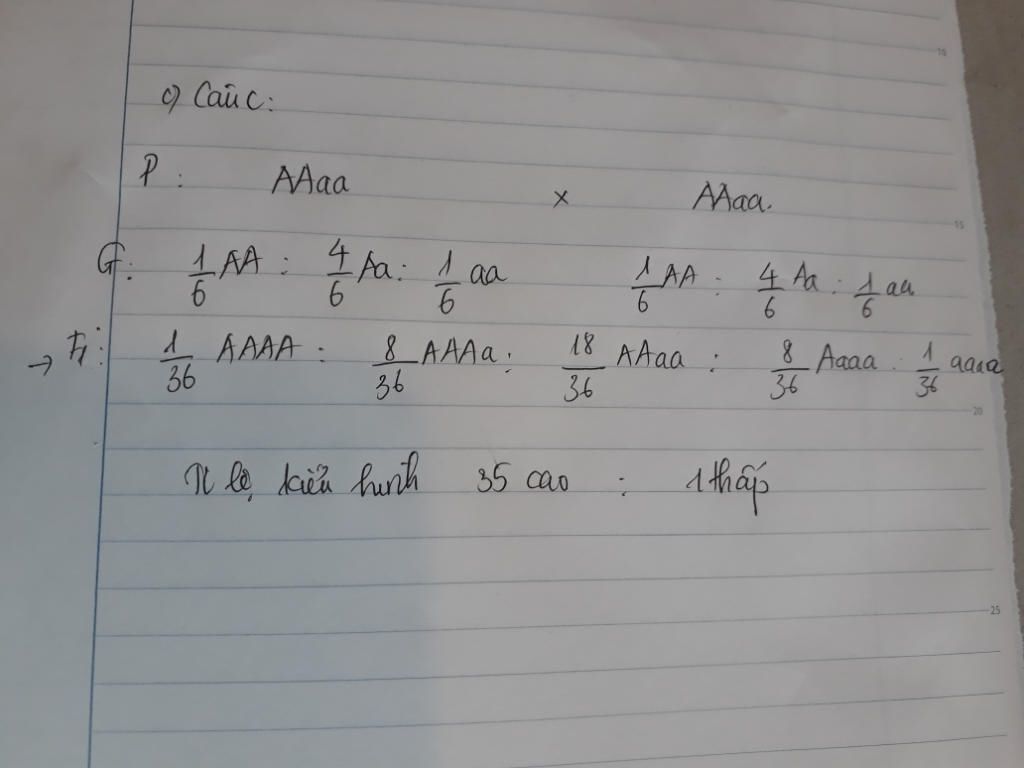 c) Câu c:
P : AAaa x AAaa.
G: 1/6 AA : 4/6 Aa : 1/6 aa 1/6 AA : 4/6 Aa : 1/6 aa
→ F1: 1/36 AAAA : 8/36 AAAa : 18/36 AAaa : 8/36 Aaaa : 1/36 aaaa
Tỉ lệ kiểu hình 35 cao : 1 thấp
10
15
20
25